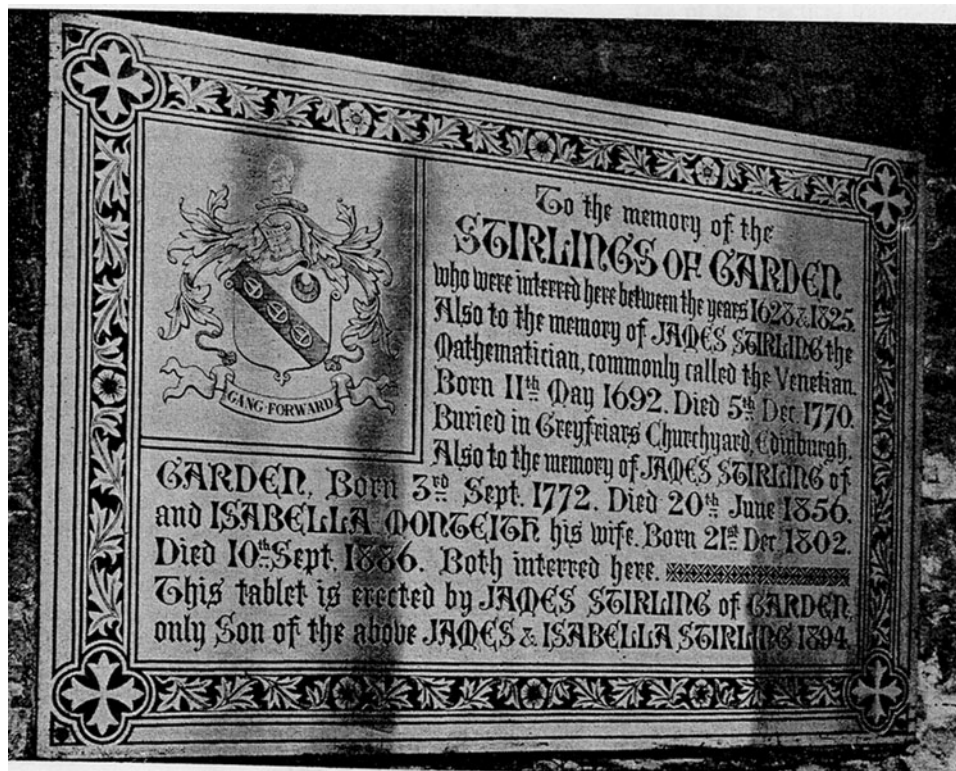 To the memory of the
STIRLINGS OF GARDEN
who were interred here between the years 1628 & 1825.
Also to the memory of JAMES STIRLING the
Mathematician, commonly called the Venetian.
Born 11th May 1692. Died 5th Dec. 1770.
Buried in Greyfriars Churchyard, Edinburgh.
Also to the memory of JAMES STIRLING of
GARDEN, Born 3rd Sept. 1772. Died 20th June 1856.
and ISABELLA MONTEITH his wife. Born 21st Dec 1802.
Died 10th Sept. 1886. Both interred here.
This tablet is erected by JAMES STIRLING of GARDEN,
only Son of the above JAMES & ISABELLA STIRLING 1894.
GANG FORWARD